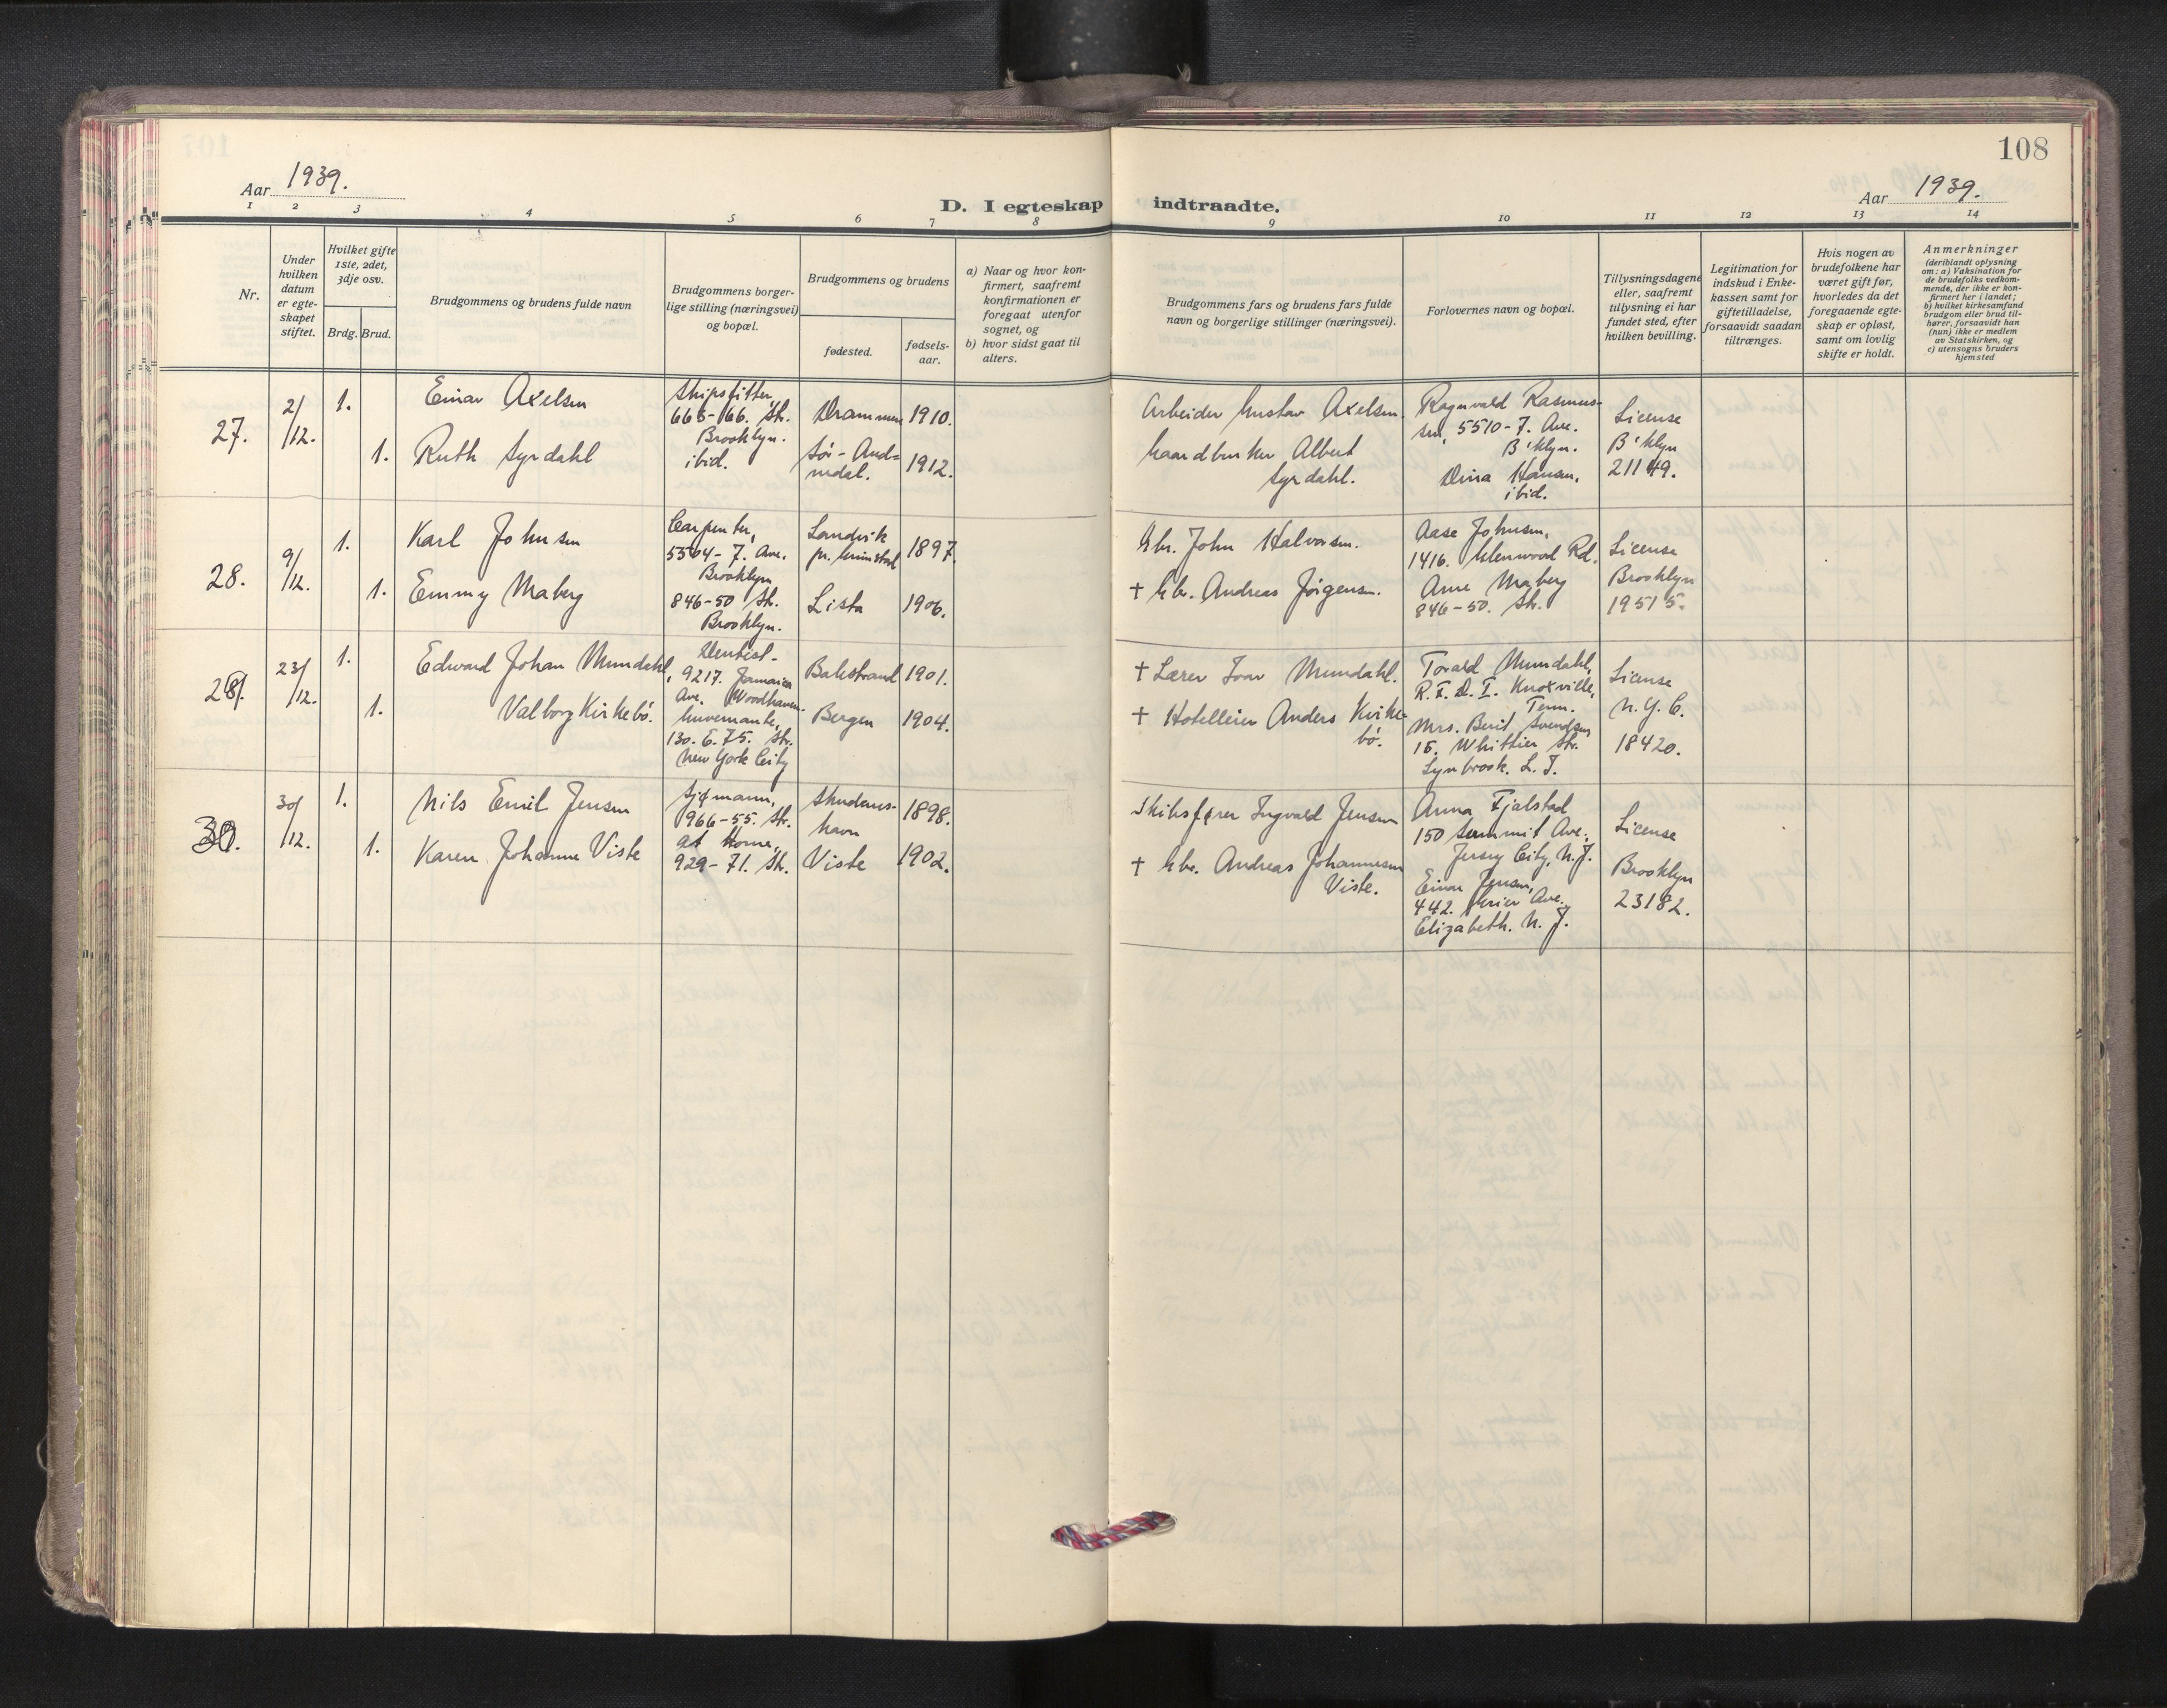 108
Aar 1939.
Aar 1939.
D. I egteskap indtraadte.
1 2 3 4 5 6 7 8 9 10 11 12 13 14
Nr.
Under
hvilken
datum
er egte-
skapet
stiftet.
Hvilket gifte
1ste, 2det,
3dje osv.
Brdg. Brud.
Brudgommens og brudens fulde navn
Brudgommens borger-
lige stilling (næringsvei)
og bopæl.
Brudgommens og brudens
fødested.
fødsels-
aar.
a) Naar og hvor kon-
firmert, saafremt
konfirmationen er
foregaat utenfor
sognet, og
b) hvor sidst gaat til
alters.
Brudgommens fars og brudens fars fulde
navn og borgerlige stillinger (næringsvei).
Forlovernes navn og bopæl.
Tillysningsdagene
eller, saafremt
tillysning ei har
fundet sted, efter
hvilken bevilling.
Legitimation for
indskud i Enke-
kassen samt for
giftetilladelse,
forsaavidt saadan
tiltrænges.
Hvis nogen av
brudefolkene har
været gift før,
hvorledes da det
foregaaende egte-
skap er opløst,
samt om lovlig
skifte er holdt.
Anmerkninger
(deriblandt oplysning
om: a) Vaksination for
de brudefolks vedkom-
mende, der ikke er kon-
firmert her i landet;
b) hvilket kirkesamfund
brudgom eller brud til-
hører, forsaavidt han
(hun) ikke er medlem
av Statskirken, og
c) utensogns bruders
hjemsted
27.
2/
12.
1.
1.
Einar Axelsen
Ruth Syrdahl
Shipsfitter,
668-66. Str.
Brooklyn.
ibid.
Drammen 1910.
Sør-Aud=
nedal. 1912.
Arbeider Gustav Axelsen.
Gaardbruker Albert
Syrdahl.
Ragnvald Rasmus-
sen, 5510-7. Ave.
B'klyn.
Dina Hansen,
ibid.
License
B'klyn
21149.
28.
9/
12.
1.
1.
Karl Johnsen
Emmy Maberg
Carpenter,
5504-7. Ave.
Brooklyn
846-50 Str.
Brooklyn.
Landvik
pr. Grimstad 1897.
Lista 1906.
Gbr. John Halvorsen.
† Gbr. Andreas Jørgensen.
Aase Johnsen,
1416. Glenwood Rd.
Arne Maberg
846-50. Str.
License
Brooklyn
19515.
23/
12.
1.
1.
Edward Johan Mundahl,
Valborg Kirkebø.
Dentist-
9217. Jamaica
Ave. Woodhaven.
Guvernante,
130. E. 75. Str.
New York City
Balestrand 1901.
Bergen 1904.
† Lærer Ivar Mundahl.
† Hotelleier Anders Kirke-
bø.
Torald Mundahl,
R. F. D. I. Knoxville,
Tenn.
Mrs. Berit Svendsen
15. Whittier Str.
Lynbrook. L. I.
License
N. Y. C.
18420.
30.
30/
12.
1.
1.
Nils Emil Jensen
Karen Johanne Viste
Sjømann,
966-55. Str.
at Home,
929-71. Str.
Skudenes-
havn 1898.
Viste 1902.
Skibsfører Ingvald Jensen
† Gbr. Andreas Johannesen
Viste.
Anna Fjalstad
150 Summit Ave.
Jersey City, N.J.
Einar Jensen,
442. Grier Ave.
Elizabeth. N. J.
License
Brooklyn
23182.